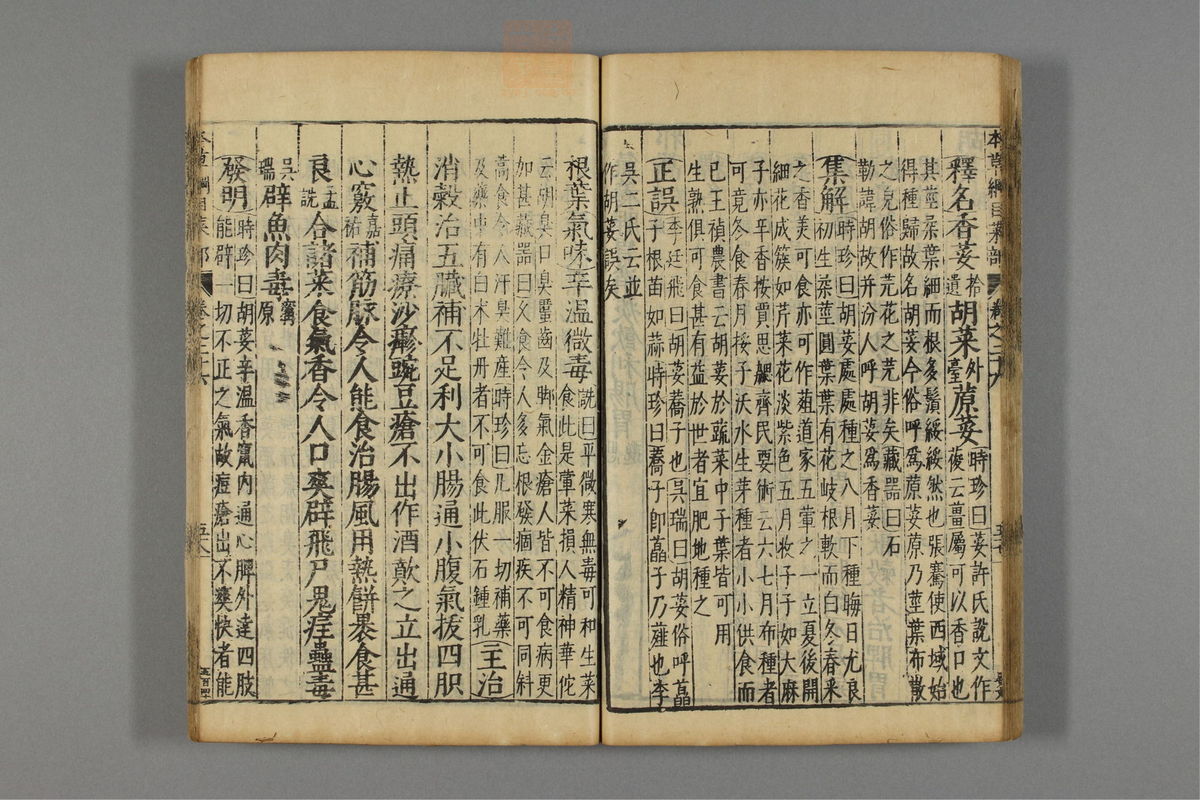 本草綱目菜部 卷之二十六 五十七
釋名香荽拾遺胡菜外臺蒝荽時珍曰荽許氏說文作
葰云薑屬可以香口也
其莖柔葉細而根多鬚綏綏然也張騫使西域始
得種歸故名胡荽今俗呼爲蒝荽蒝乃莖葉布散
之皃俗作芫花之芫非矣藏器曰石
勒諱胡故幷汾人呼胡荽爲香荽
集解時珍曰胡荽處處種之八月下種晦日尤良
初生柔莖圓葉葉有花岐根軟而白冬春采
之香美可食亦可作葅道家五葷之一立夏後開
細花成簇如芹菜花淡紫色五月收子子如大麻
子亦辛香按賈思勰齊民要術云六七月布種者
可竟冬食春月挼子沃水生芽種者小小供食而
已王禎農書云胡荽於蔬菜中子葉皆可用
生熟俱可食甚有益於世者宜肥地種之
正誤李廷飛曰胡荽蕎子也吳瑞曰胡荽俗呼蒚
子根苗如蒜時珍曰蕎子即蒚子乃薤也李
吳二氏云並
作胡荽誤矣
根葉氣味辛溫微毒詵曰平微寒無毒可和生菜
食此是葷菜損人精神華佗
云胡臭口臭䘌齒及脚氣金瘡人皆不可食病更
如甚藏器曰久食令人多忘根發痼疾不可同斜
蒿食令人汗臭難産時珍曰凡服一切補藥
及藥中有白朮牡丹者不可食此伏石鍾乳主治
消穀治五臟補不足利大小腸通小腹氣拔四肢
熱止頭痛療沙瘮豌豆瘡不出作酒歕之立出通
心竅嘉祐補筋脉令人能食治腸風用熱餅裹食甚
良孟詵合諸菜食氣香令人口爽辟飛尸鬼疰蠱毒
吳瑞辟魚肉毒甯原
發明時珍曰胡荽辛溫香竄內通心脾外達四肢
能辟一切不正之氣故痘瘡出不爽快者能
本草綱目菜部 卷之二十六 五十八